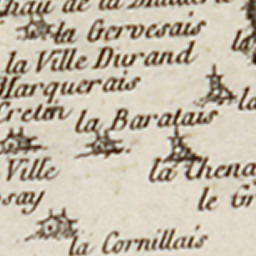 de la
la Gervesais
la
la Ville Durand
Marquerais
la
Creton
la Baratais
Ville
la Chena
le Gr
say
la Cornillais